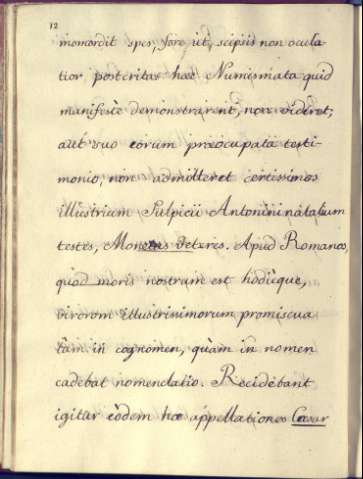 12
momordit spes, fore ut, se ipsis non ocula-
tior posteritas hæc Numismata quid
manifestè demonstrarent, non videret;
aut suo eorum præocupata testi-
monio, non admitteret certissimos
illustrium Sulpicii Antonini natalium
testes, Monetas Veteres. Apud Romanos,
quod moris nostrum est hodieque,
virorum illustrissimorum promiscua
tàm in cognomen, quàm in nomen
cadebat nomenclatio. Recidebant
igitur eòdem hæ appellationes Cæsar